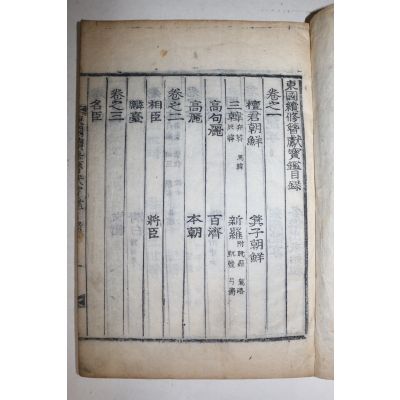 東國續修簪獻寶鑑目錄
卷之一
檀君朝鮮 箕子朝鮮
三韓 辰韓 馬韓 新羅
高句麗 百濟
高麗 本朝
卷之二
相臣 將臣
卷之三
名臣